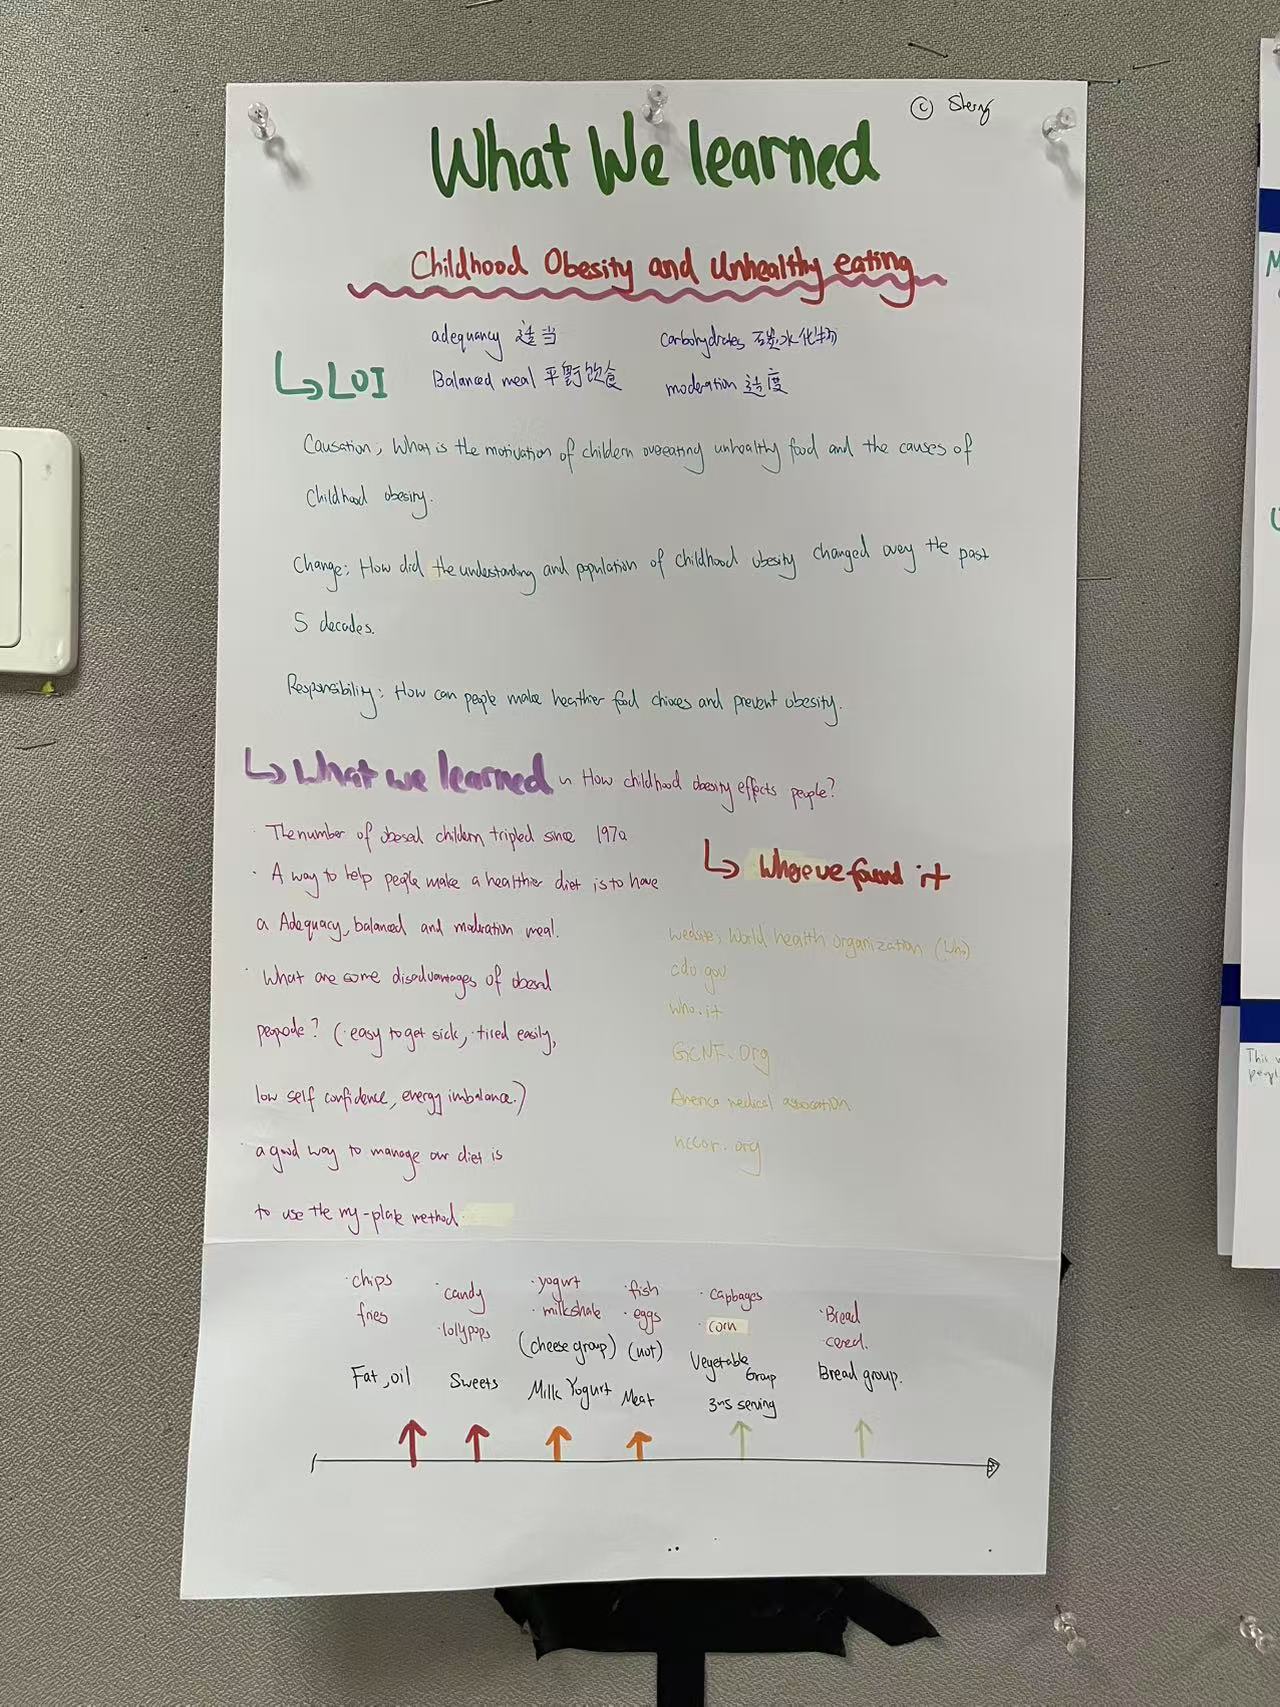 ©
What We learned
Childhood Obesity and Unhealthy eating
adequancy 适当
carbohydrates 碳水化物
↳LOI
Balanced meal 平衡饮食
moderation 适度
Causation; What is the motivation of childern overeating unhealthy food and the causes of
childhood obesity.
Change: How did the understanding and population of childhood obesity changed over the past
5 decades.
Responsibility: How can people make healthier food choices and prevent obesity.
↳ What we learned in How childhood obesity effects people?
· The number of obesed childern tripled since 1970
· A way to help people make a healthier diet is to have
a Adequacy, balanced and moderation meal.
· What are some disadvantages of obesed
people? (·easy to get sick, ·tired easily,
low self confidence, energy imbalance.)
· a good way to manage our diet is
to use the my-plate method.
↳ Where we found it
website; World health organization (Who)
cdc.gov
who.it
GCNF.Org
America medical association
nccor.org
· chips
fries
Fat, oil
· candy
· lollypops
Sweets
· yogurt
· milkshake
(cheese group)
Milk Yogurt
· fish
· eggs
(nut)
Meat
· capbages
· corn
Vegetable Group
3~5 serving
· Bread
· cereal.
Bread group.